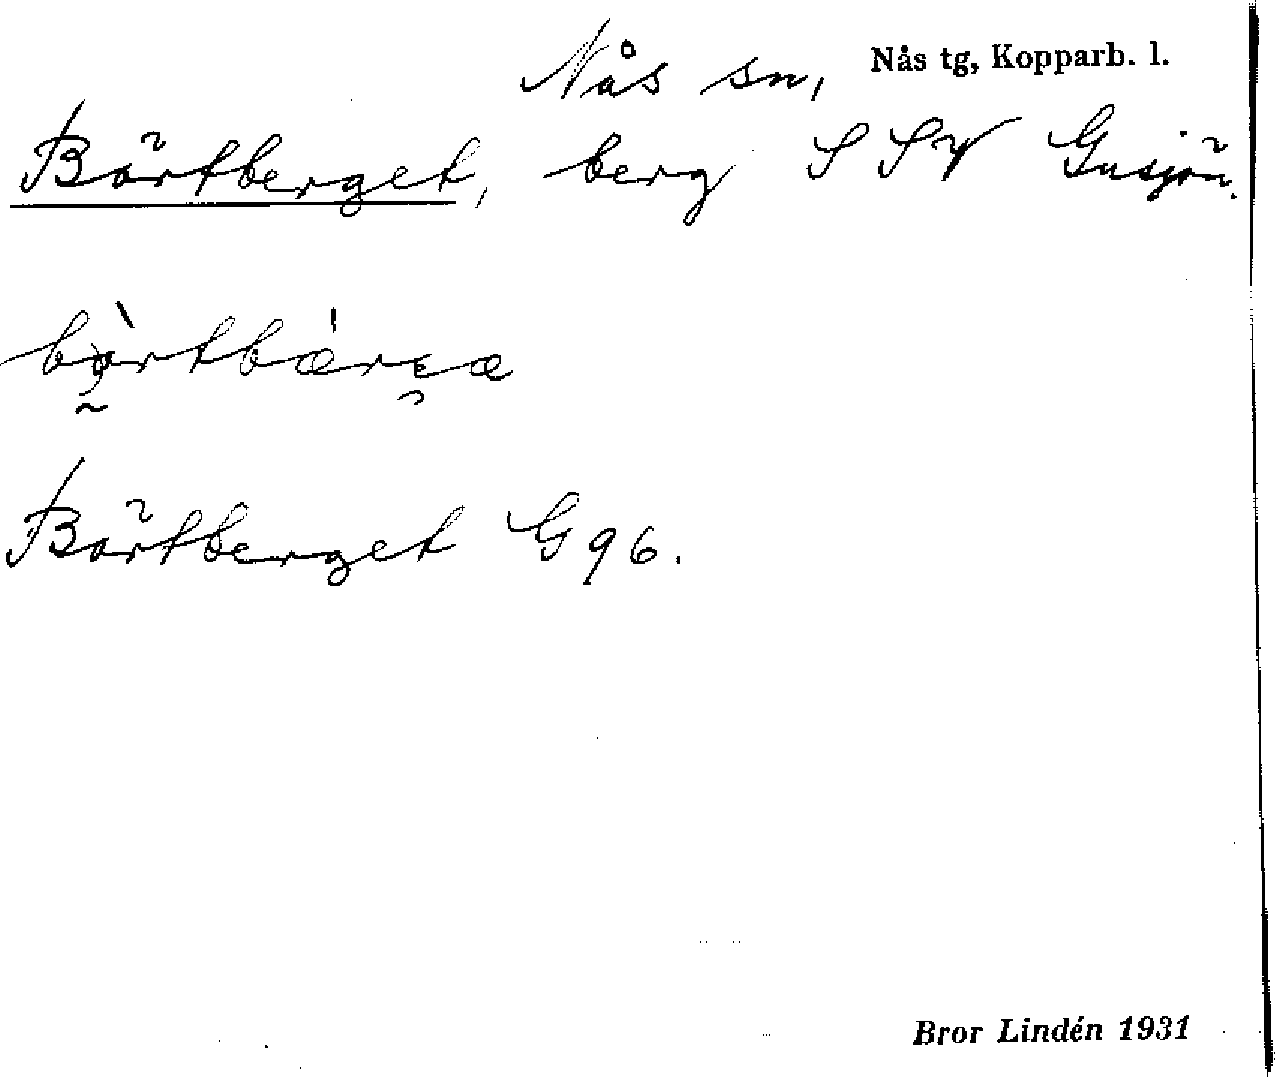 Nås sn, Nås tg, Kopparb. l.
Börtberget, berg SSV Gusjön.
Börtberget G 96.
Bror Lindén 1931